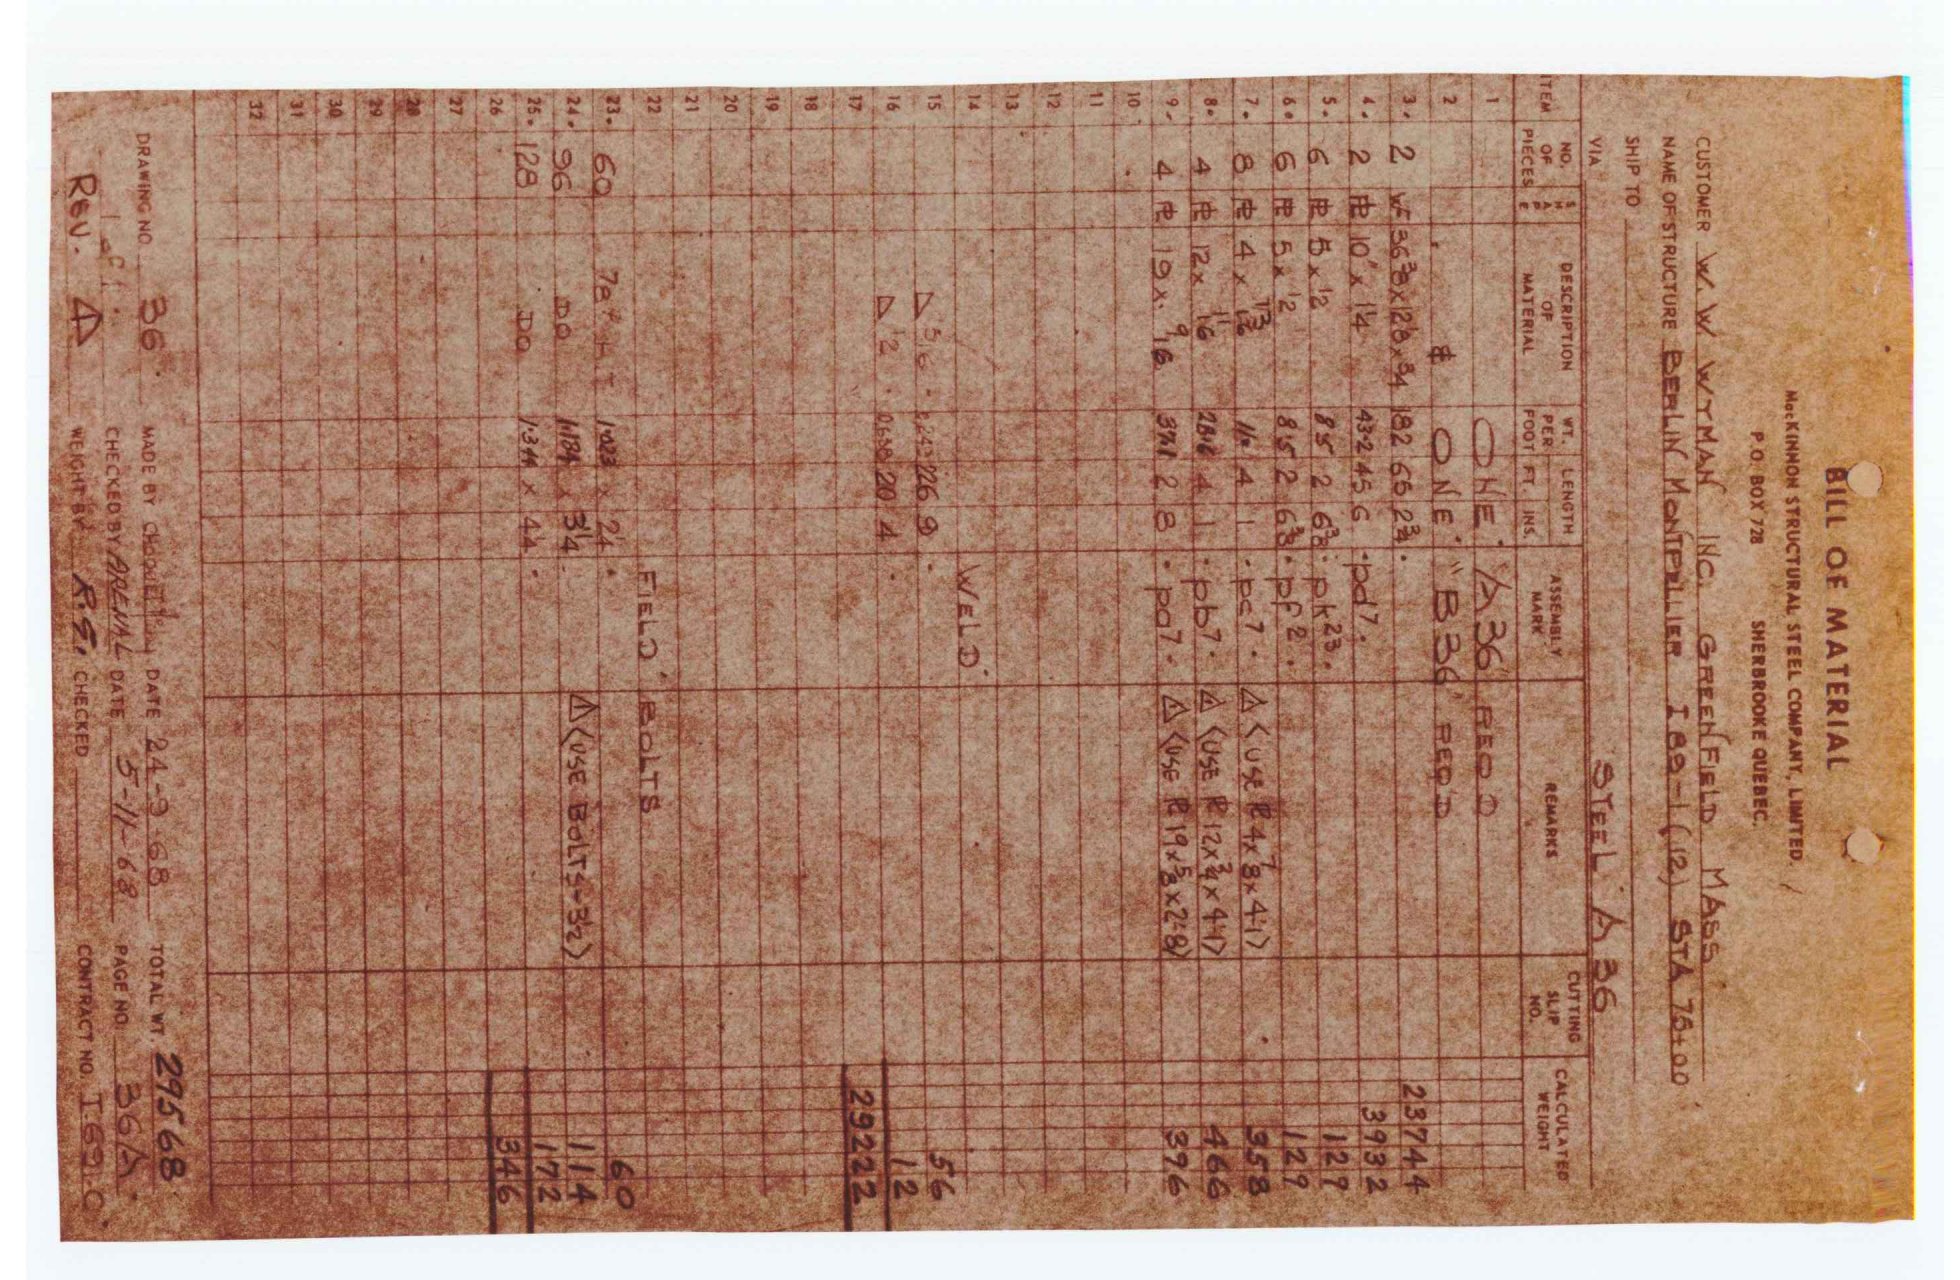 BILL OF MATERIAL
MacKINNON STRUCTURAL STEEL COMPANY, LIMITED.
P.O. BOX 728 SHERBROOKE QUEBEC.
CUSTOMER W.W WYMAN INC. GREENFIELD MASS
NAME OF STRUCTURE BERLIN MONTPELLIER I 89-1 (12) STA 75+00
SHIP TO
VIA STEEL A 36
ITEM NO. OF PIECES SHAPE DESCRIPTION OF MATERIAL WT. PER FOOT LENGTH FT. INS. ASSEMBLY MARK REMARKS CUTTING SLIP NO. CALCULATED WEIGHT
1 ONE A36 REQD
2 ONE "B36" REQ'D
3. 2 WF 36⅜x12⅛x¾ 182 65 2¾ 23744
4. 2 PL 10" x 1¼ 43.2 45 6 pd7. 3932
5. 6 PL 5 x ½ 8 5 2 6⅜ pk23. 129
6. 6 PL 5 x ½ 8 5 2 6⅜ pf2. 129
7. 8 PL 4 x 13/16 11. 4 1 pc7. △ <USE PL 4x⅞x4-1> 358
8. 4 PL 12 x 11/16 4 1 pb7. △ <USE PL 12x¾x4-1> 466
9. 4 PL 19 x 9/16 2 8 pa7. △ <USE PL 19x⅝x2-8> 396
10
11
12
13
14 WELD
15 △ 5/16 226 9 56
16 △ ½ 20 4 12
17 29222
18
19
20
21
22 FIELD BOLTS
23. 60 1.023 x 2¼ 60
24. 96 DO x 3¼ △ <USE BOLTS-3½> 114
25. 128 DO 1.344 x 4¼ 172
26 346
27
28
29
30
31
32
DRAWING NO. 36 MADE BY DATE 24-9-68 TOTAL WT. 29568
CHECKED BY ARENAL DATE 5-11-68 PAGE NO. 36A
REV. △ WEIGHT BY R.G. CHECKED CONTRACT NO. I.89.C.